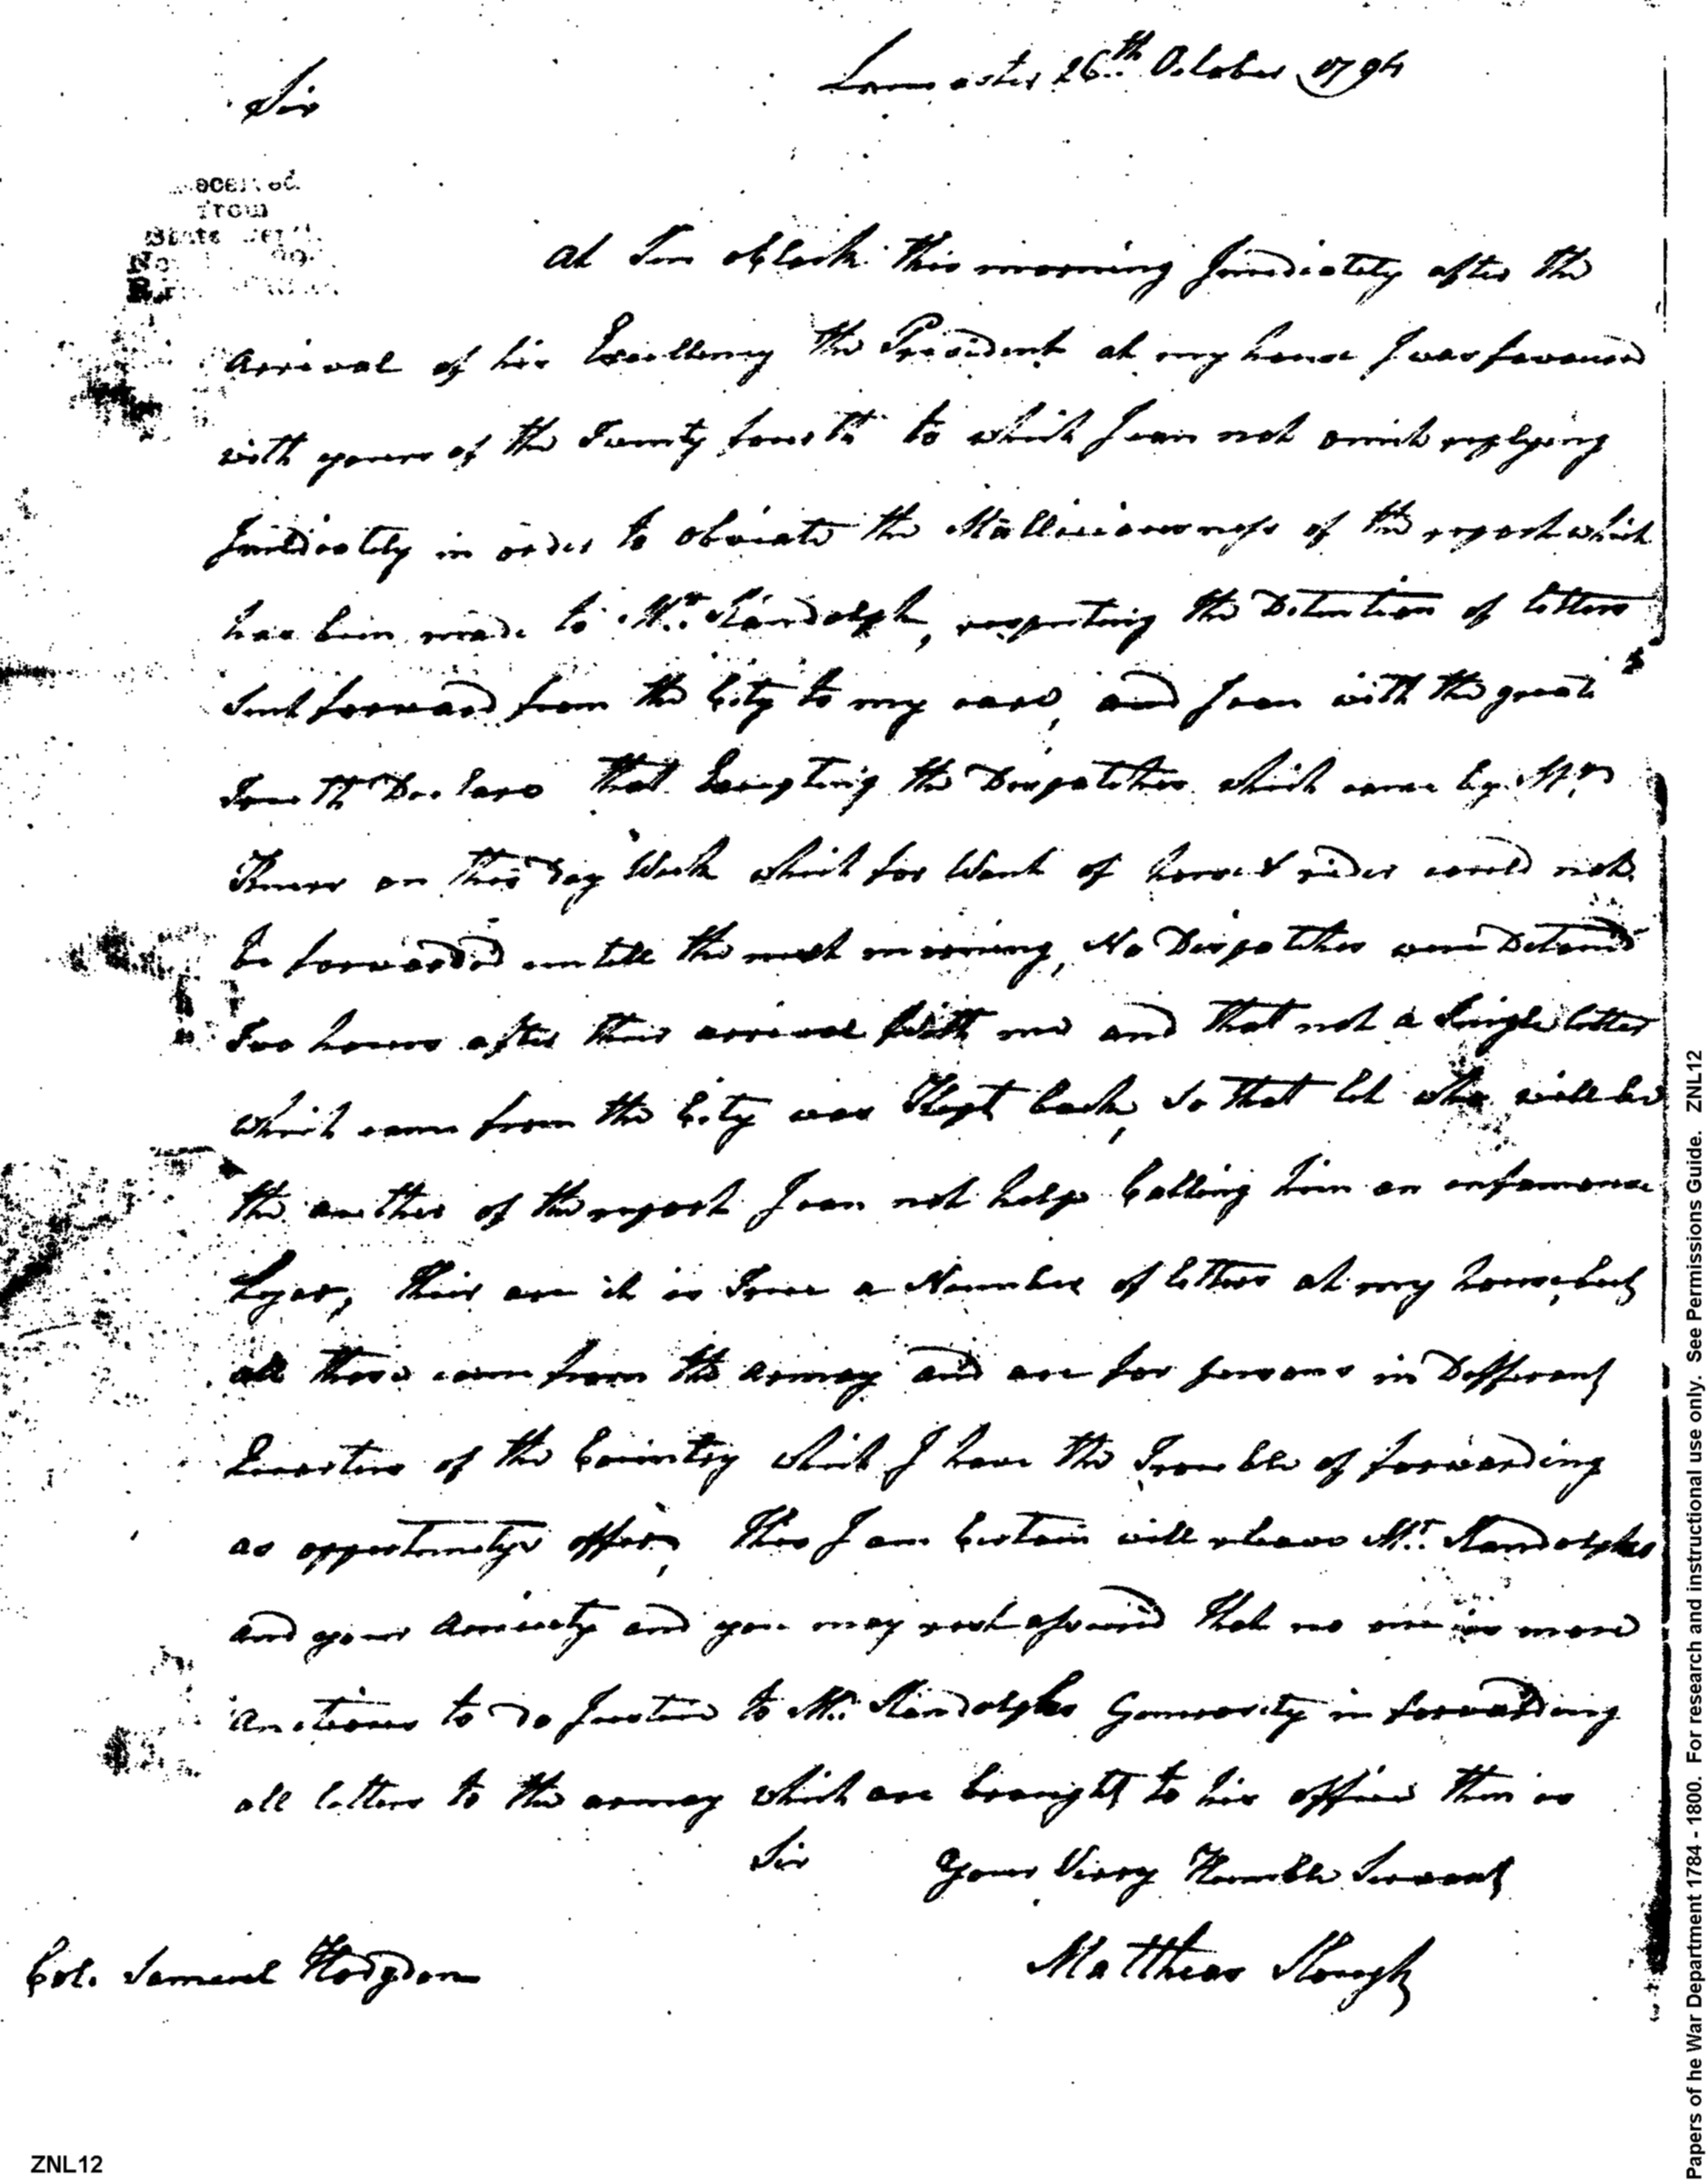 Lancaster 26th October 1794
Sir
Received
from
State Dept.
At Ten oClock this morning Immediately after the
arrival of his Excellency the President at my house I was favoured
with yours of the Twenty fourth to which I can not omit replying
Immediately in order to obviate the Malliciousness of the report which
has been made to Mr. Randolph, respecting the Detention of letters
sent forward from the City to my care, and I can with the great
Truth Declare that Excepting the Dispatches which came by Mr.
on this Day Week which for Want of horse & rider could not
be forwarded untill the next morning, No Dispatches were Detained
Two hours after their arrival with me and that not a Single letter
which came from the City was Kept back, so that let who will be
the author of the report I can not help Calling him an infamous
Lyar, their are it is True a Number of letters at my house, but
all those came from the army and are for persons in Different
Quarters of the Country which I have the Trouble of forwarding
as opportunitys offer, this I am Certain will releave Mr. Randolphs
and your Anxiety and you may rest assured that no one is more
anctious to do Justice to Mr. Randolphs Generosity in forwarding
all letters to the army which are brought to his office then is
Sir Your Verry Humble Servant
Matthias Slough
Col. Samuel Hodgdon
ZNL12
Papers of he War Department 1784 - 1800. For research and instructional use only. See Permissions Guide. ZNL12